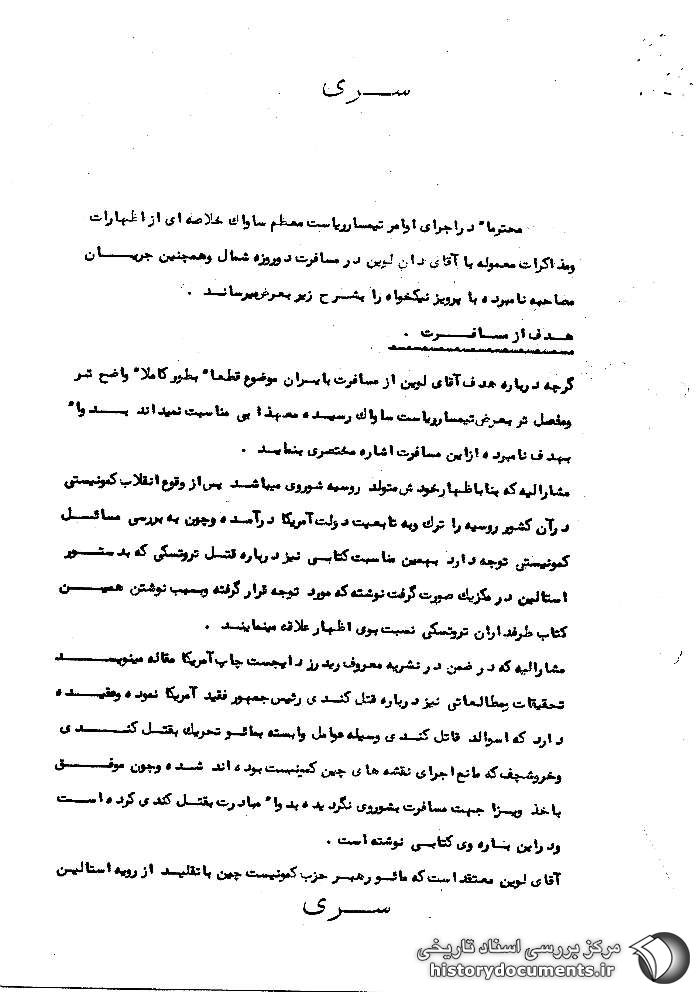 سری
محترما" در اجرای اوامر تیمسار ریاست معظم ساواك خلاصه ای از اظهارات
ومذاکرات معموله با آقای دان لوین در مسافرت دوروزه شمال وهمچنین جریان
مصاحبه نامبرده با پرویز نیکخواه را بشرح زیر بعرض میرساند .
هدف از مسافرت .
گرچه درباره هدف آقای لوین از مسافرت بایران موضوع قطعا" بطور کاملا" واضح تر
ومفصل تر بعرض تیمسار ریاست ساواك رسیده معهذا بی مناسبت نمیداند بدوا"
بهدف نامبرده ازاین مسافرت اشاره مختصری بنماید .
مشارالیه که بنا باظهار خودش متولد روسیه شوروی میباشد پس از وقوع انقلاب کمونیستی
درآن کشور روسیه را ترك وبه تابعیت دولت آمریکا درآمده وچون به بررسی مسائل
کمونیستی توجه دارد بهمین مناسبت کتابی نیز درباره قتل تروتسکی که بدستور
استالین در مکزیك صورت گرفت نوشته که مورد توجه قرار گرفته وبسبب نوشتن همین
کتاب طرفداران تروتسکی نسبت بوی اظهار علاقه مینمایند .
مشارالیه که در ضمن در نشریه معروف ریدرز دایجست چاپ آمریکا مقاله مینویسد
تحقیقات ومطالعاتی نیز درباره قتل کندی رئیس جمهور فقید آمریکا نموده وعقیده
دارد که اسوالد قاتل کندی وسیله عوامل وابسته بمائو تحریك بقتل کندی
وخروشچف که مانع اجرای نقشه های چین کمینست بوده اند شده وچون موفق
باخذ ویزا جهت مسافرت بشوروی نگردیده بدوا" مبادرت بقتل کندی کرده است
ودر این باره وی کتابی نوشته است .
آقای لوین معتقد است که مائو رهبر حزب کمونیست چین با تقلید از رویه استالین
سری
مرکز بررسی اسناد تاریخی
historydocuments.ir